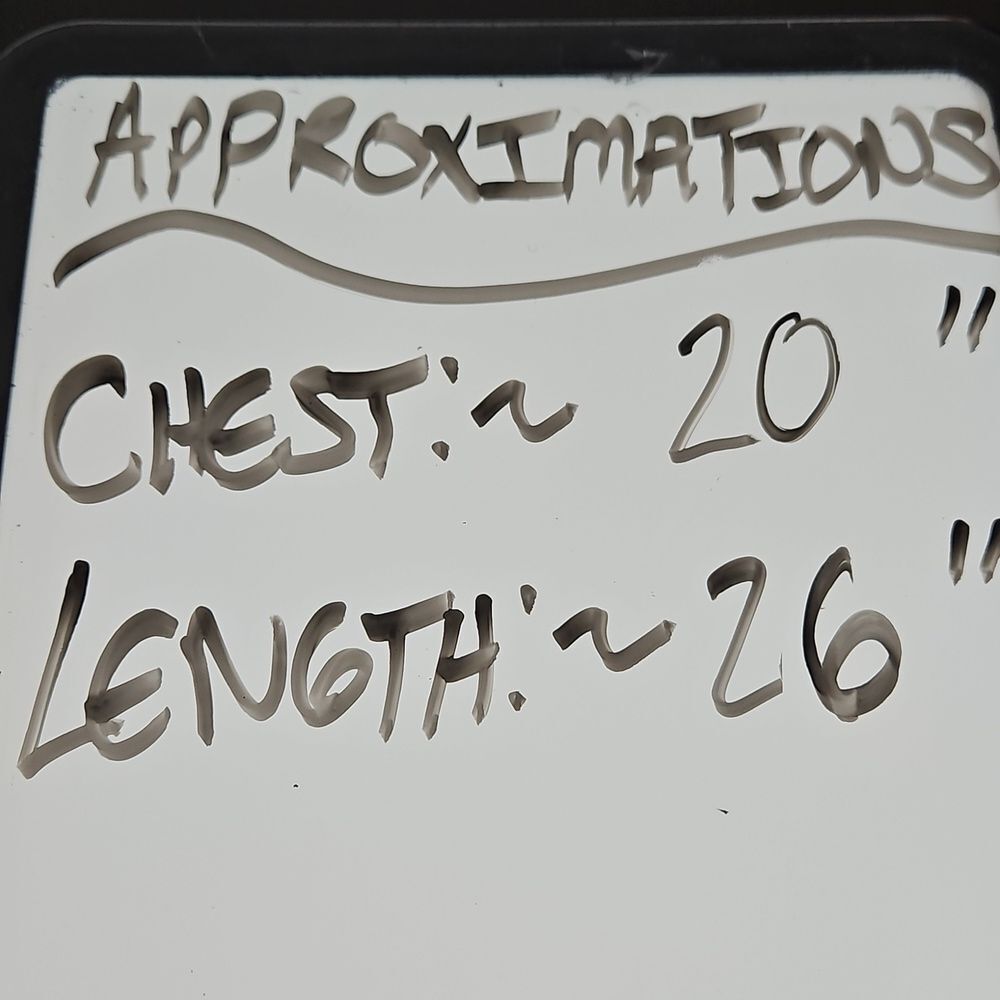 APPROXIMATIONS
CHEST: ~ 20 "
LENGTH: ~ 26 "